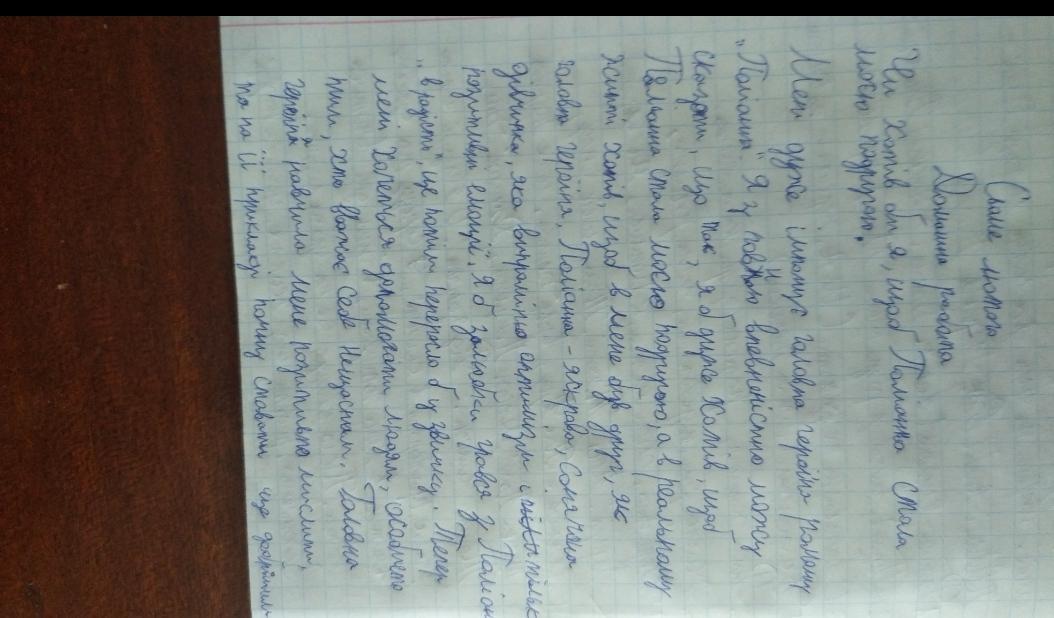 Сьоме лютого
Домашня робота
Чи хотів би я, щоб Поліанна стала
моєю подругою.
Мені дуже імпонує головна героїня роману
„Поліанна". Я у повною впевненістю можу
сказати, що так, я б дуже хотів, щоб
Поліанна стала моєю подругою, а в реальному
житті хотів, щоб в мене був друг, як
головна героїня. Поліанна - яскрава, сонячна
дівчинка, яка випромінює оптимізм і тільк
позитивні емоції. Я б залюбки грався з Поліан
„в радість", це потім переросло б у звичку. Тепер
мені хочеться допомагати людям, особливо
тим, хто вважає себе нещасним. Головна
героїня навчила мене позитивно мислити,
та на її прикладі почну ставати ще добрішим